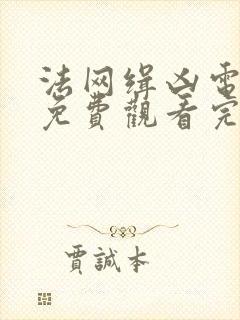 法网缉凶電
免費觀看完
賈誠本